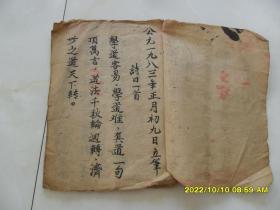 公元一九八三年正月初九日立笔
詩曰一首
學道容易學道难真道一句
頂萬言道法千秋輪迴轉濟
世之道天下转。
2022/10/10 08:59 AM